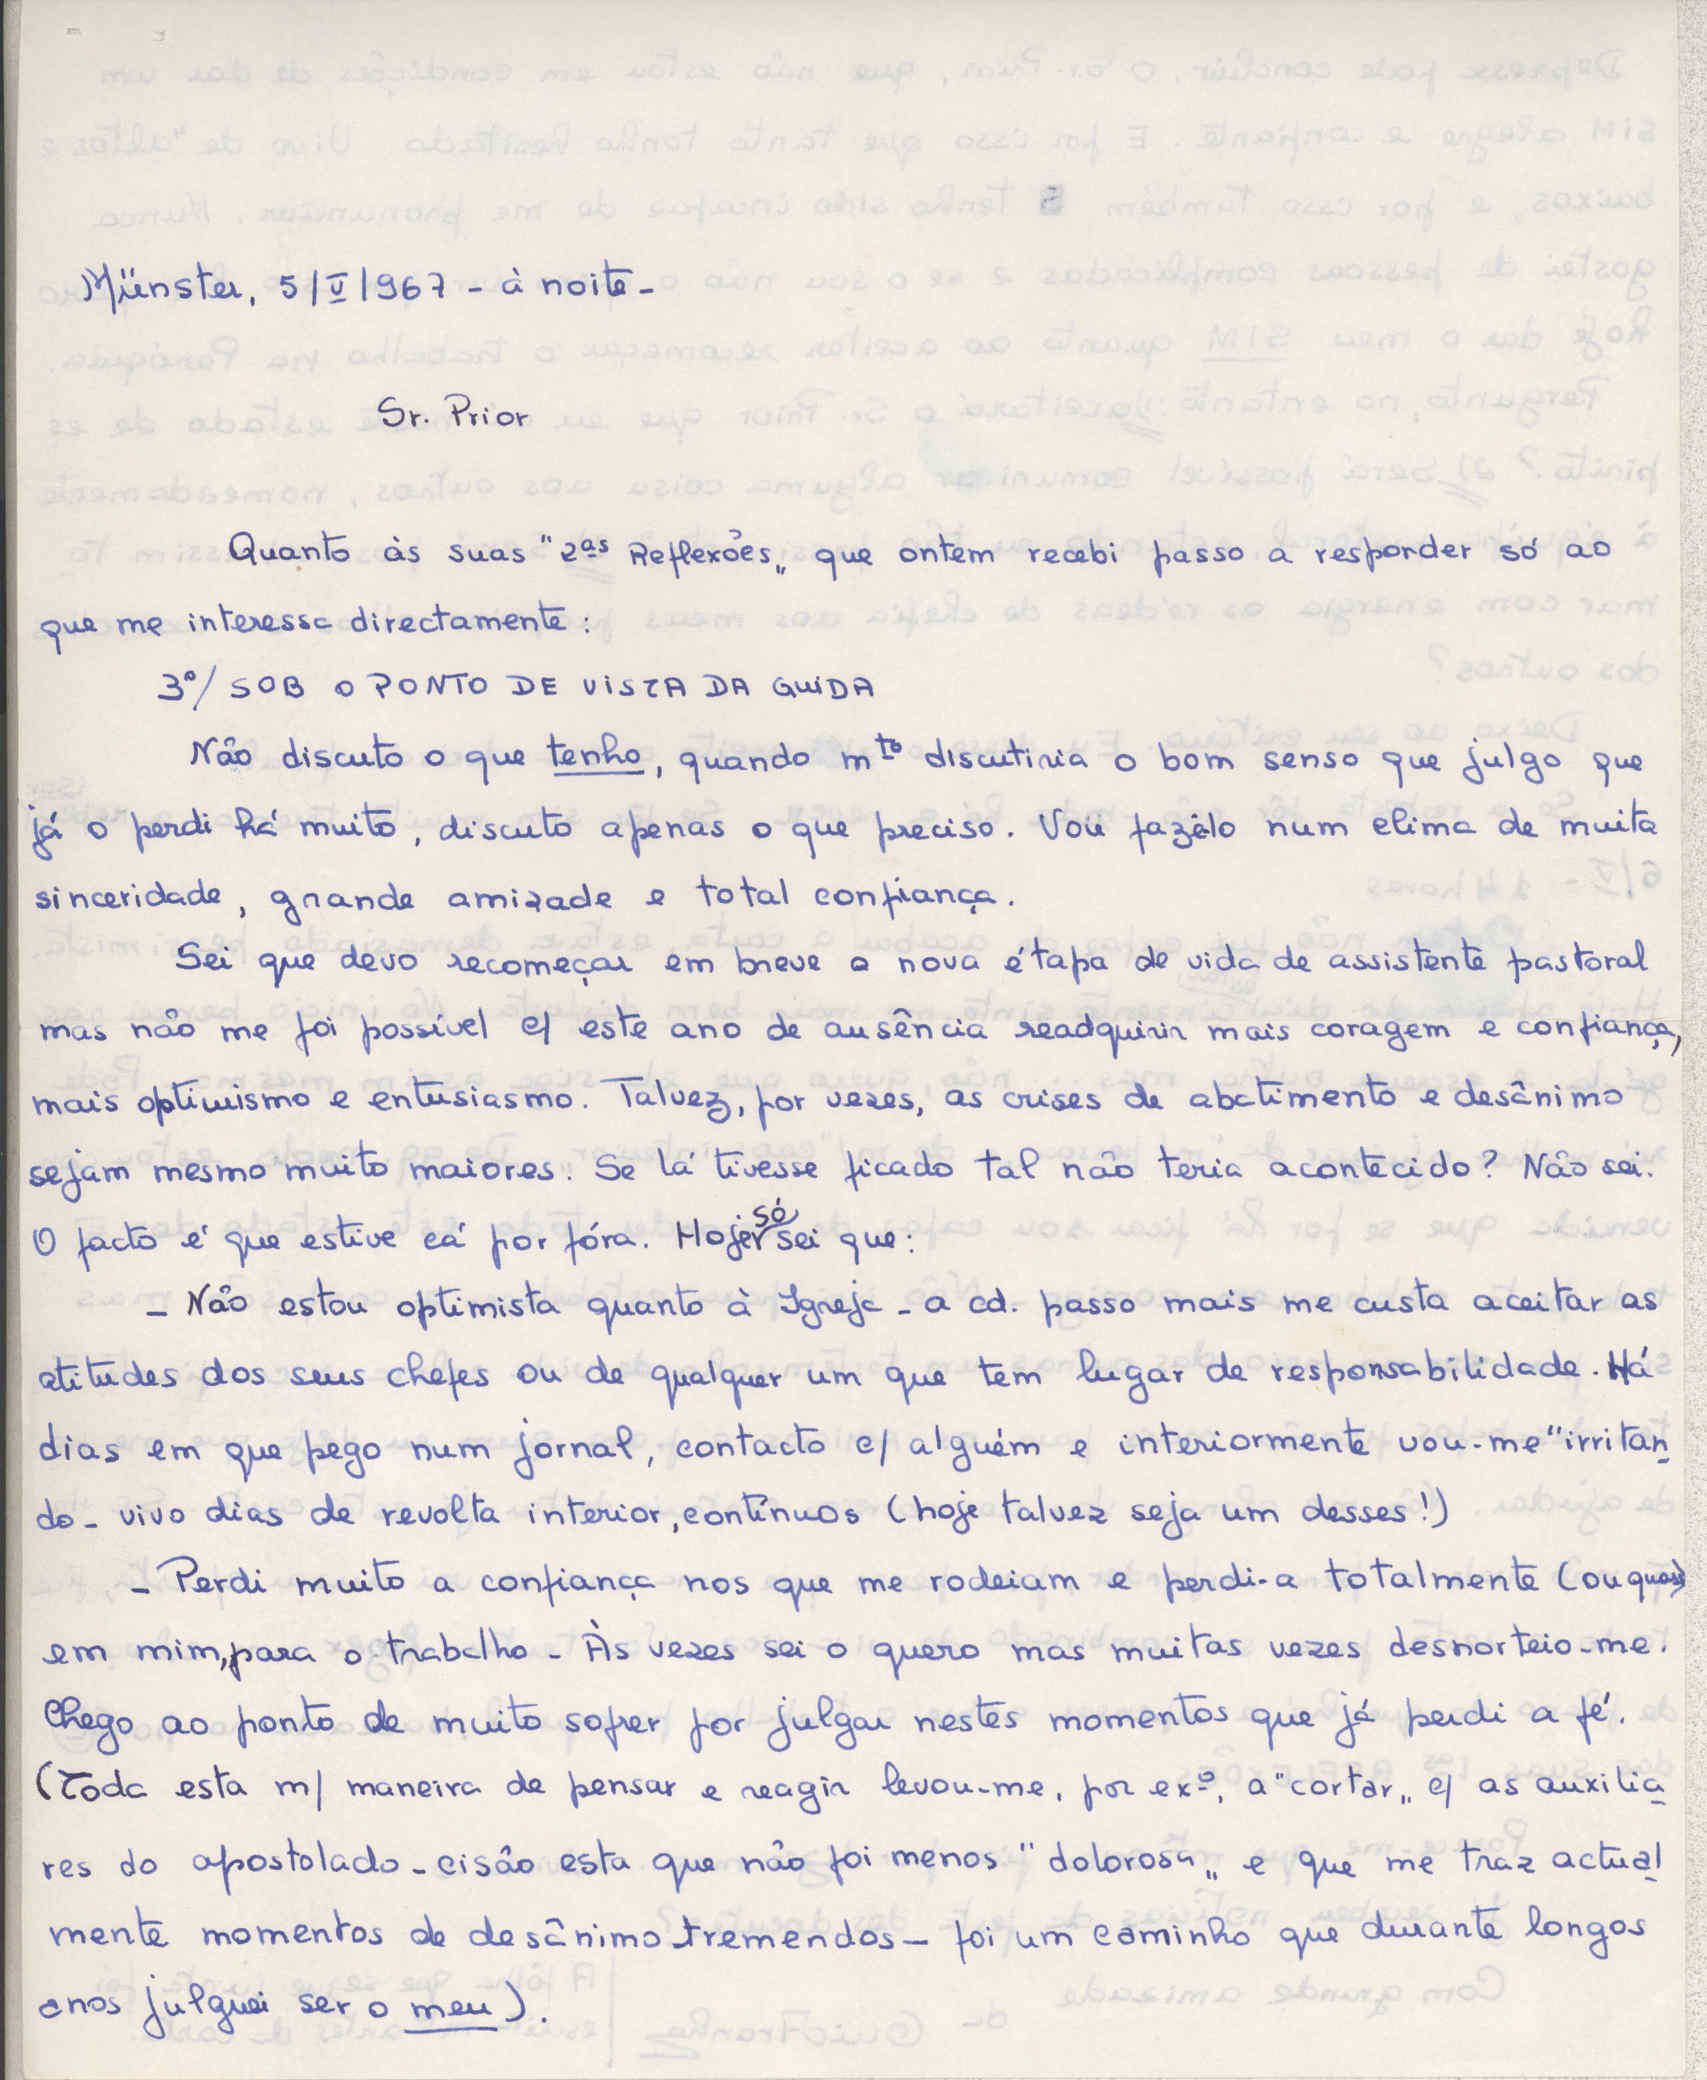 Münster, 5/V/1967 - à noite -
Sr. Prior
Quanto às suas "2as Reflexões„ que ontem recebi passo a responder só ao
que me interessa directamente:
3º/ SOB O PONTO DE VISTA DA GUIDA
Não discuto o que tenho, quando mto discutiria o bom senso que julgo que
já o perdi há muito, discuto apenas o que preciso. Vou fazêlo num clima de muita
sinceridade, grande amizade e total confiança.
Sei que devo recomeçar em breve a nova étapa de vida de assistente pastoral
mas não me foi possível c/ este ano de ausência readquirir mais coragem e confiança,
mais optimismo e entusiasmo. Talvez, por vezes, as crises de abatimento e desânimo
sejam mesmo muito maiores. Se lá tivesse ficado tal não teria acontecido? Não sei.
O facto é que estive cá por fóra. Hoje só sei que:
- Não estou optimista quanto à Igreja - a cd. passo mais me custa aceitar as
atitudes dos seus chefes ou de qualquer um que tem lugar de responsabilidade. Há
dias em que pego num jornal, contacto c/ alguém e interiormente vou-me "irritan
do - vivo dias de revolta interior, contínuos (hoje talvez seja um desses!)
- Perdi muito a confiança nos que me rodeiam e perdi-a totalmente (ou quasi)
em mim, para o trabalho - Às vezes sei o quero mas muitas vezes desnorteio-me.
Chego ao ponto de muito sofrer por julgar nestes momentos que já perdi a fé.
(Toda esta m/ maneira de pensar e reagir levou-me, por exº, a "cortar„ c/ as auxilia
res do apostolado - cisão esta que não foi menos "dolorosa„ e que me traz actual
mente momentos de desânimo tremendos - foi um caminho que durante longos
anos julguei ser o meu).